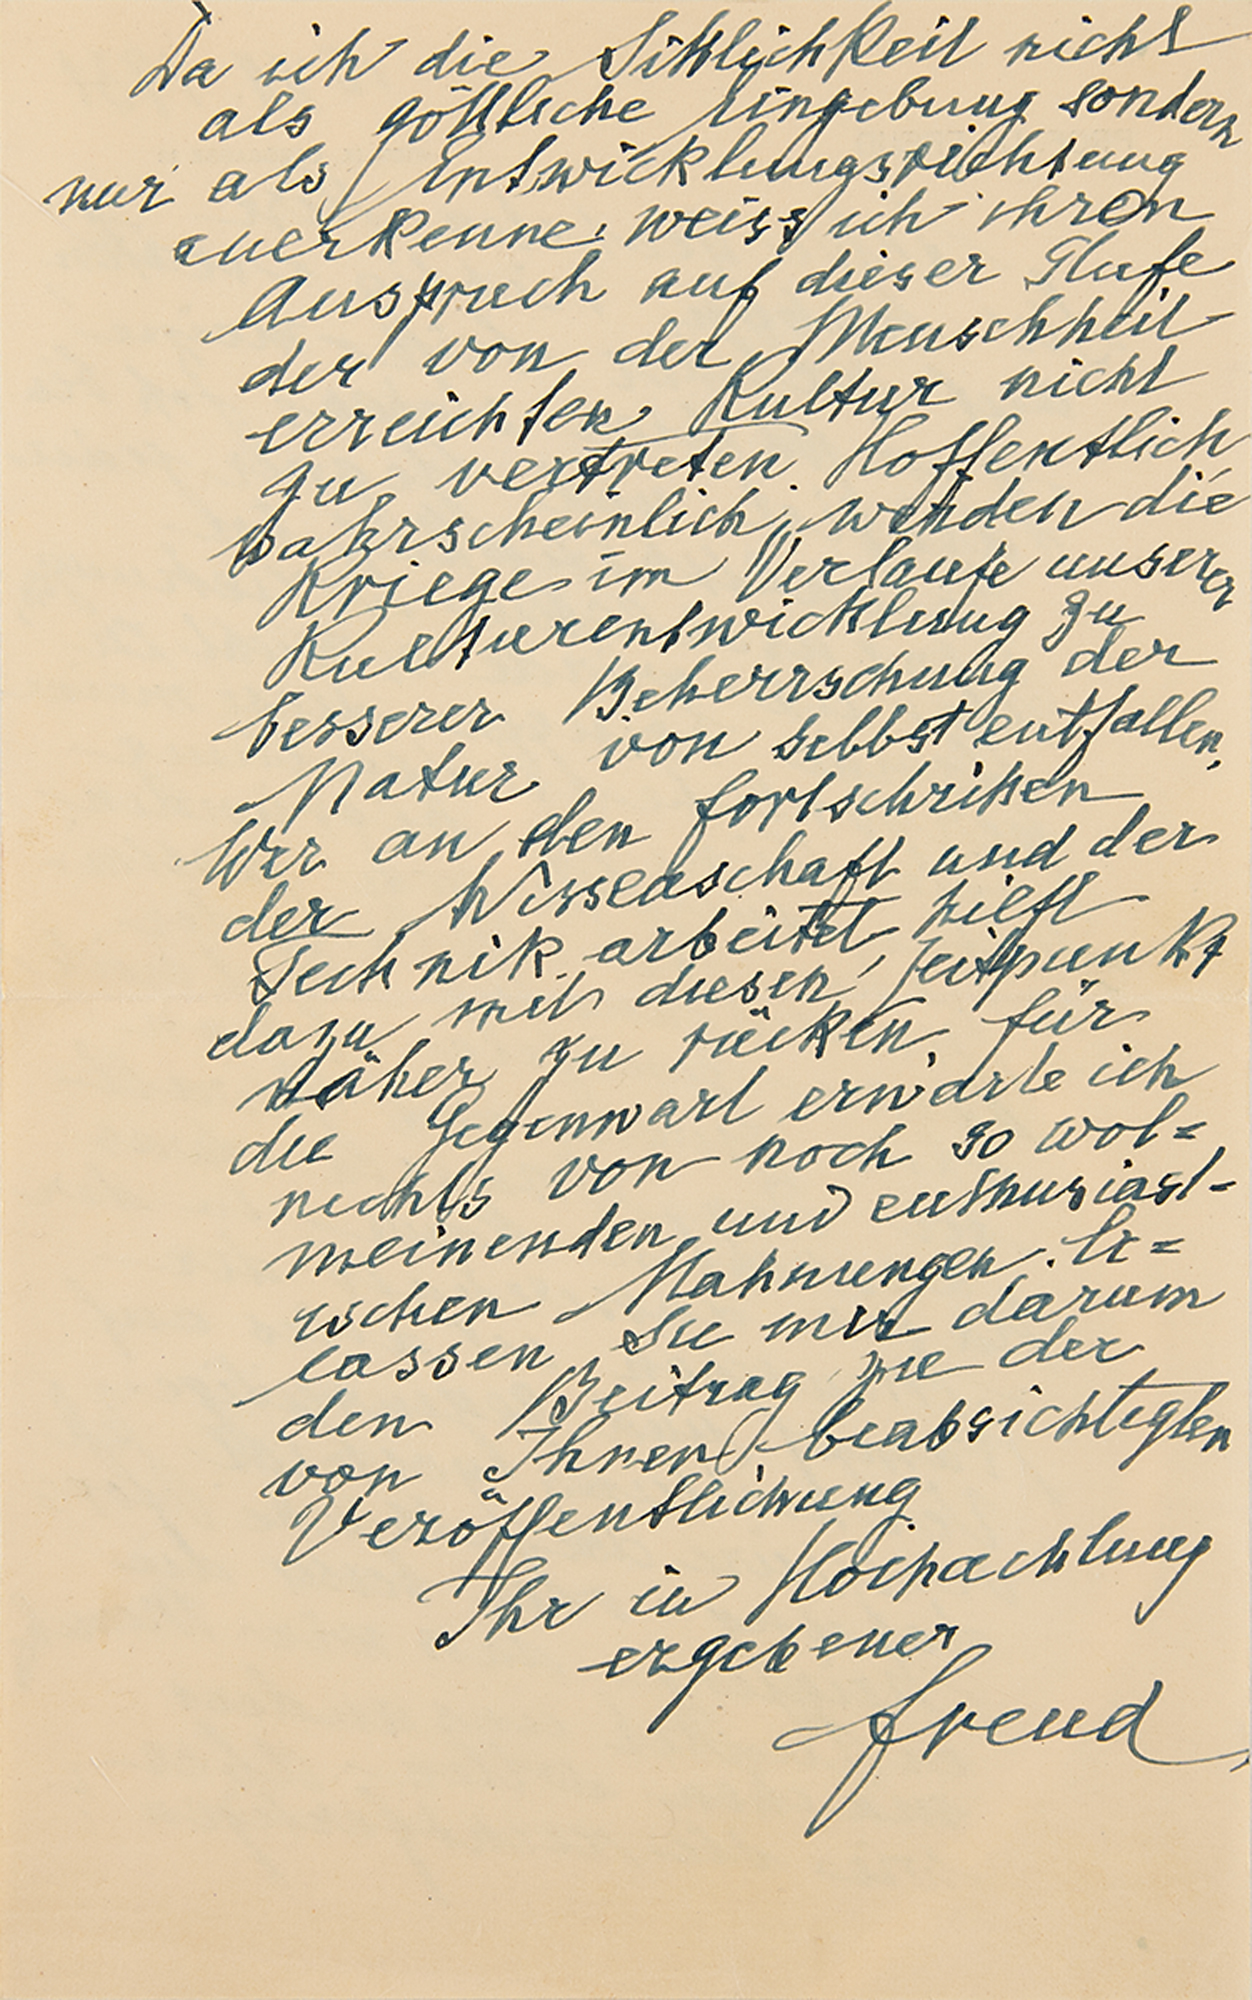 Da ich die Sittlichkeit nicht
als göttliche Eingebung sondern
nur als Entwicklungsrichtung
anerkenne, weiss ich ihren
Anspruch auf dieser Stufe
der von der Menschheit
erreichten Kultur nicht
zu vertreten. Hoffentlich
wahrscheinlich, werden die
Kriege im Verlaufe unserer
Kulturentwicklung zu
besserer Beherrschung der
Natur von selbst entfallen,
Wer an den Fortschritten
der Wissenschaft und der
Technik arbeitet, hilft
dazu mit diesen Zeitpunkt
näher zu rücken, für
die Gegenwart erwarte ich
nichts von noch so wol=
meinenden und enthusiast-
ischen Mahnungen. Er=
lassen Sie mir darum
den Beitrag zu der
von Ihnen beabsichtigten
Veröffentlichung
Ihr in Hochachtung
ergebener
Freud